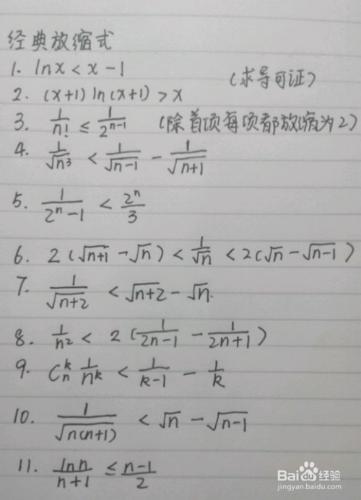 经典放缩式
1. lnx < x - 1
2. (x+1) ln(x+1) > x （求导可证）
3. 1/n! ≤ 1/2^(n-1) （除首项每项都放缩为2）
4. 1/√n³ < 1/√(n-1) - 1/√(n+1)
5. 1/(2^n - 1) < 2^n/3
6. 2(√(n+1) - √n) < 1/√n < 2(√n - √(n-1))
7. 1/√(n+2) < √(n+2) - √n.
8. 1/n² < 2(1/(2n-1) - 1/(2n+1))
9. C_n^k 1/n^k < 1/(k-1) - 1/k
10. 1/√(n(n+1)) < √n - √(n-1)
11. lnn/(n+1) ≤ (n-1)/2
Baidu经验
jingyan.baidu.com